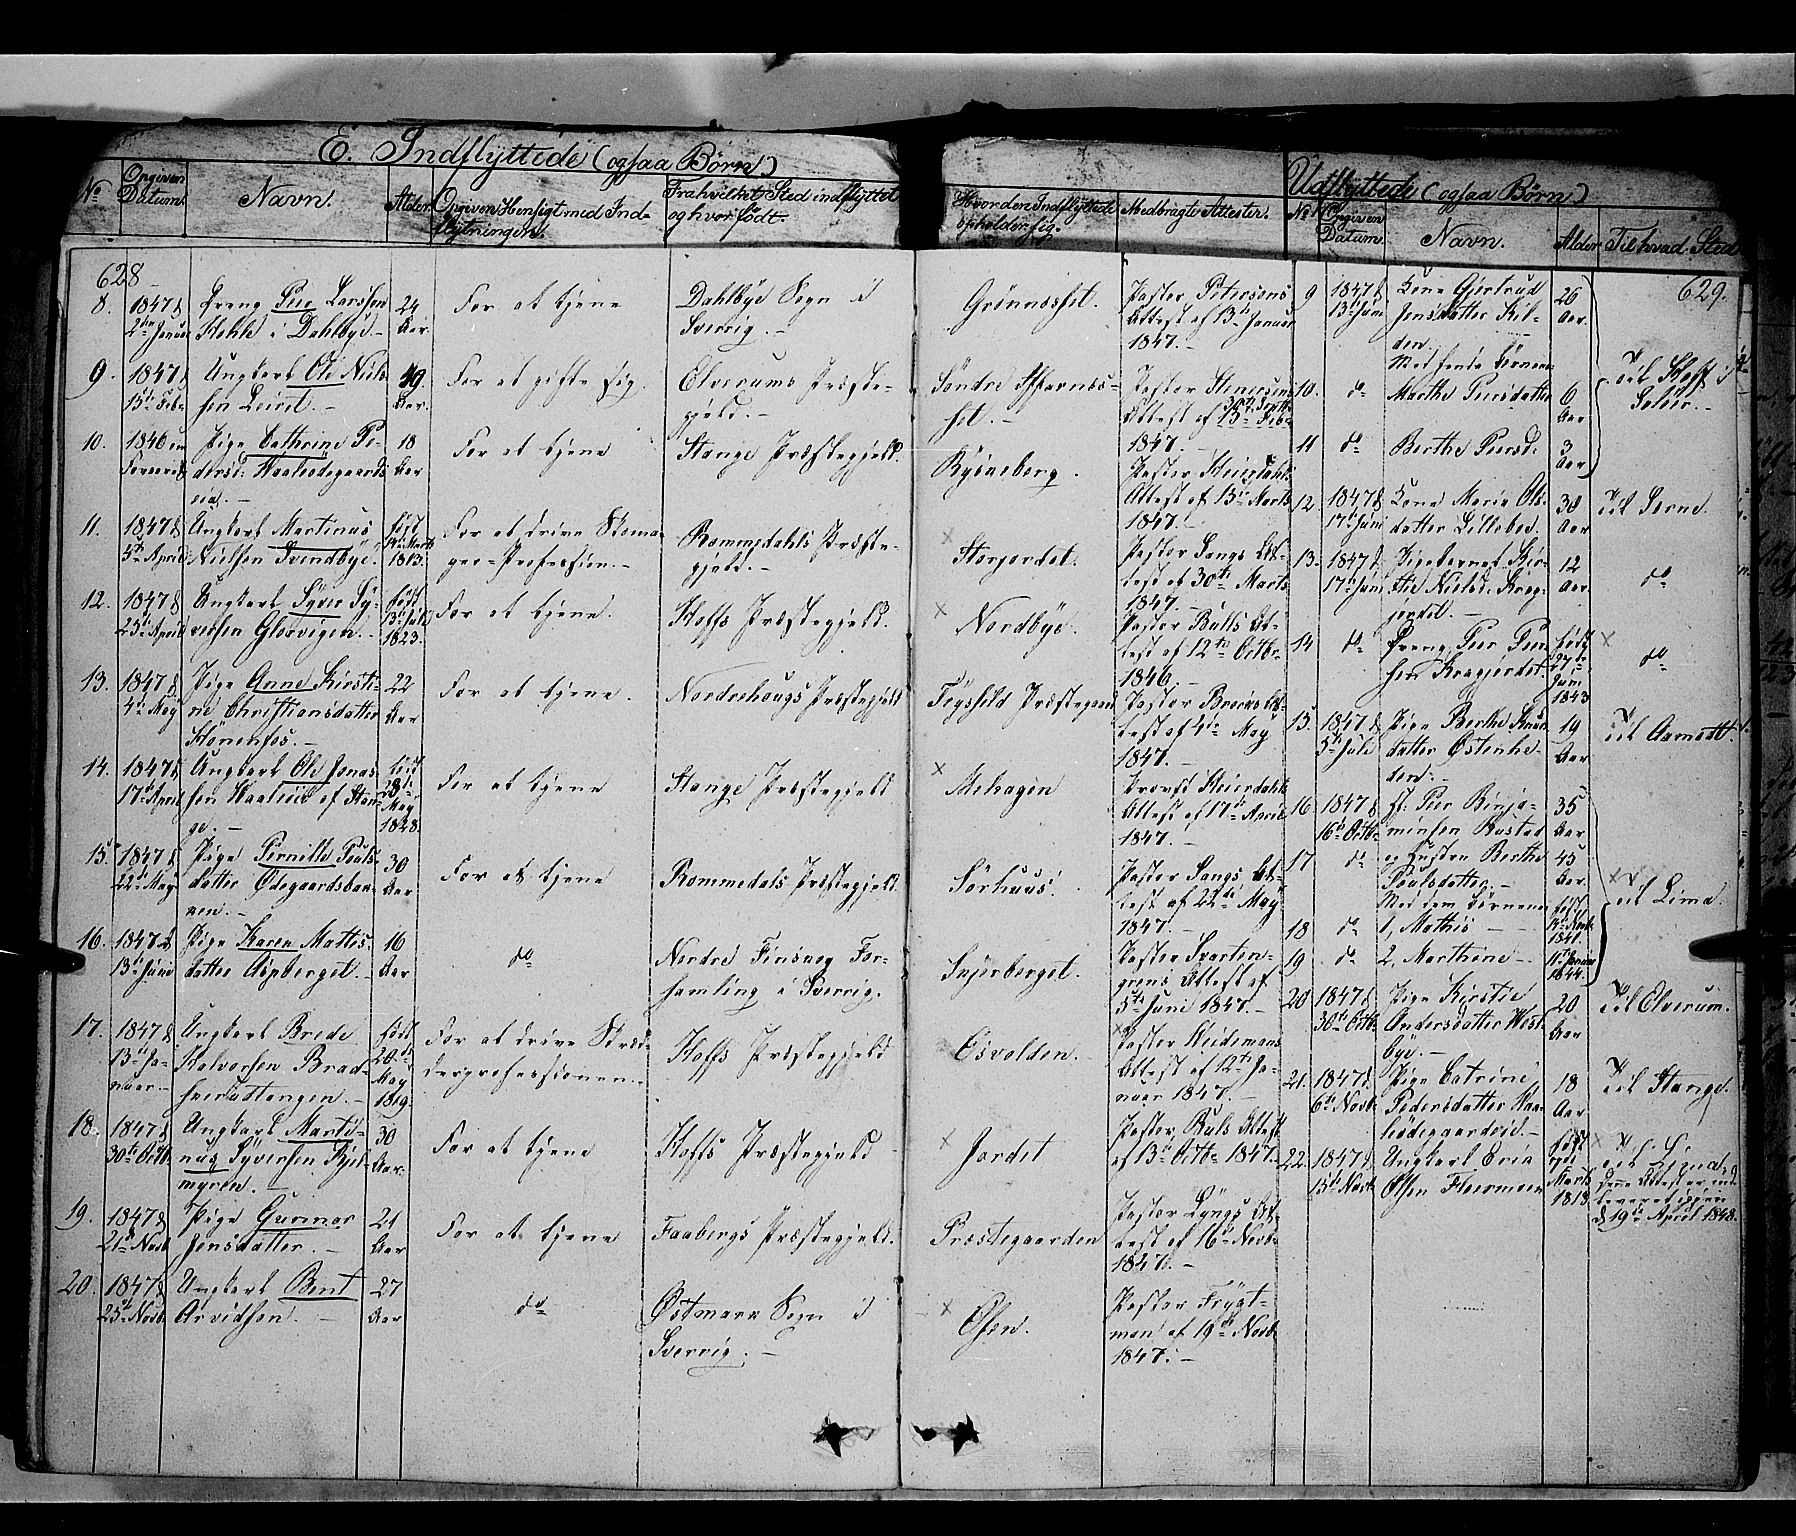 E. Indflyttede (ogsaa Børn)
No
Opgiven Datum.
Navn.
Alder
Opgiven Hensigt med Ind-
flytningen.
Fra hvilket Sted indflyttet
og hvor født.
Hvor den Indflyttede
opholder sig.
Medbragte Attester.
Udflyttede (ogsaa Børn)
No
Opgiven Datum.
Navn.
Alder
Til hvad Sted
628
8. 1847 d. 2den Januar
Dreng Peer Larssen
i Dahlbye
24 Aar
For at tjene
Dahlbye Sogn i
Sverrig. -
Grønnæsset.
Pastor Petersens
Attest af 13de Januar
1847. -
9. 1847 d. 15de Feb.
Ungkarl Ole Niels-
sen Leiret. -
Aar.
For at gifte sig.
Elverums Præste-
gjeld. -
Søndre
set.
Pastor Stenersens
Attest af
1847. -
10. 1846 in
Pige Cathrine Pe-
dersd:
eie. -
18 Aar
For at tjene
Stange Præstegjeld
Rysneberg.
Pastor Heierdahls
Attest af 15de Marts
1847.
11. 1847 d. 5te April
Ungkarl Martinus
Nielsen Svendbye.
født 14de Marts 1813.
For at drive Skoma-
ger-Profession. -
Rommedahls Præste-
gjeld. -
Storjordet.
Pastor Langs At-
test af 30te Marts
1847. -
12. 1847 d. 23de April
Ungkarl Syver Sy-
versen Gloevigen. -
født 13de Juli 1823.
For at tjene.
Hoffs Præstegjeld.
Nordbye.
Pastor Bulls At-
test af 12te Octbr.
1846. -
13. 1847 d. 4de May
Pige Anne Kirsti-
ne Christiansdatter
Hønenfos. -
22 Aar
For at tjene.
Nordrehougs Præstegjeld
Trysild Præstegaard
Pastor Breens At-
test af 4de May
1847. -
14. 1847 d. 17de April
Ungkarl Ole Jonas-
sen af Stan-
ge. -
født 28de May 1828.
For at tjene
Stange Præstegjeld
Mehagen
Provst Heierdahls
Attest af 17de April
1847. -
15. 1847 d. 22de May
Pige Pernille Pouls-
datter Ødegaardsbak-
ken. -
30 Aar
For at tjene
Rommedals Præstegjeld
Sørhuus.
Pastor Langs At-
test af 22de May
1847. -
16. 1847 d. 13de Juni
Pige Karen Mattis-
datter Aspberget. -
16 Aar
do
Nordre Finskog For-
samling i Sverrig.
Snjerberget.
Pastor Svarten-
grens Attest af
5te Juni 1847. -
17. 1847 d. 13de Ja-
nuar. -
Ungkarl Brede
Halvorsen Brad-
. -
født 20de May 1819.
For at drive Skræd-
derprofessionen. -
Hoffs Præstegjeld
Eisvolden. -
Pastor Heidemans
Attest af 12te Ja-
nuar 1847. -
18. 1847 d. 30te Octb.
Ungkarl Marti-
nus Syversen Kjel-
myren. -
30 Aar.
For at tjene
Hoffs Præstegjeld
Jordet
Pastor Buls Attest
af 13de Octbr. 1847. -
19. 1847 d. 21de Novb.
Pige Gunnor
Jensdatter. -
21 Aar
For at tjene
Faabergs Præstegjeld.
Præstegaarden
Pastor Lyngs At-
test af 16de Novb.
1847. -
20. 1847 d. 25de Novb.
Ungkarl Bent
Arvidsen. -
27 Aar
do
Østmark Sogn i
Sverrig. -
Øsen.
Pastor Frygt-
man af 19de Novb.
1847. -
629.
9 1847 d. 13de Juni
Kone Gjertrud
Jensdatter Kil-
den.
26 Aar.
Med hende Børnene
10. do
Marthe Peersdatter
6 Aar
Til Hoff i
Soløer. -
11 do
Berthe Peersd:
3 Aar
12 1847 d. 17de Juni
Kone Maria Ols-
datter Lilleboe.
30 Aar
Til Serne.
13. 1847 d. 17de Juni
Pigebarnet Kir-
sti Nielsd: Krag-
jordet.
12 Aar.
do
14 do
Dreng Peer Peer-
sen Kragjordet.
født 27de Juni 1843
do
15. 1847 d. 5te Juli
Pige Berthe Knuds-
datter Østenhe-
den. -
19 Aar
Til Aamodt.
16 1847 d. 16de Octb.
fl. Peer Binja-
minsen Bustad
35 Aar
17 do
og Hustru Berthe
Poulsdatter. -
45 Aar.
Med dem Børnene
18 do
1, Mathis -
født 14de 1841.
19 do
2, Marthine -
11te Januar 1844.
Til Lima.
20 1847 d. 30te Octb.
Pige Kirstie
Andersdatter West-
bye. -
20 Aar
Til Elverum.
21. 1847 d. 6te Novb.
Pige Catrine
Pedersdatter Haa-
lieødegaardeie. -
18 Aar
Til Stange.
22. 1847 d. 15de Novb.
Ungkarl Eric
Olsen Floermoen
født 7de Marts 1818.
Denne Attest er ind-
leveret igjen
d. 19de April 1848.